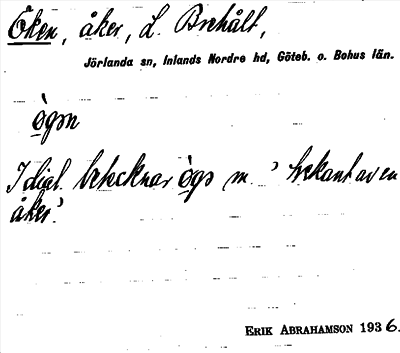 Öken, åker, L. Brehålt,
Jörlanda sn, Inlands Nordre hd, Göteb. o. Bohus län.
ògɔn
I dial. betecknar ògɔ m. 'trekant av en
åker'.
ERIK ABRAHAMSON 1936.